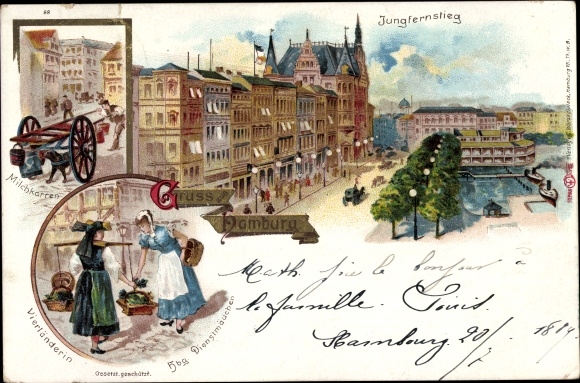 88
Jungfernstieg
Milchkarren
Gruss
Hamburg
Vierländerin
Hbg Dienstmädchen
Gesetzl. geschützt.
Math. fie le bonjour à
la famille.
Hambourg 20/7